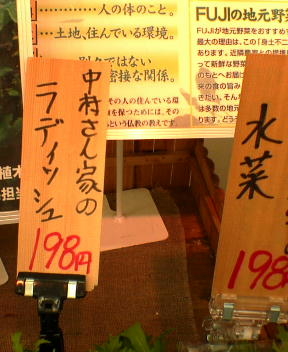 …………人の体のこと。
…土地、住んでいる環境。
別々ではない
密接な関係。
その人の住んでいる環
を保つためには、その
という仏教の教えです。
FUJIの地元野菜
FUJIが地元野菜をおすすめす
最大の理由は、この「身土不二
あります。近隣農家との提携
って新鮮な野菜
のもとへお届け
来の食の旨み
きたい。そん
は多数の地元
ります。どう
中村さん家の
ラディッシュ
198円
水菜
198
担当